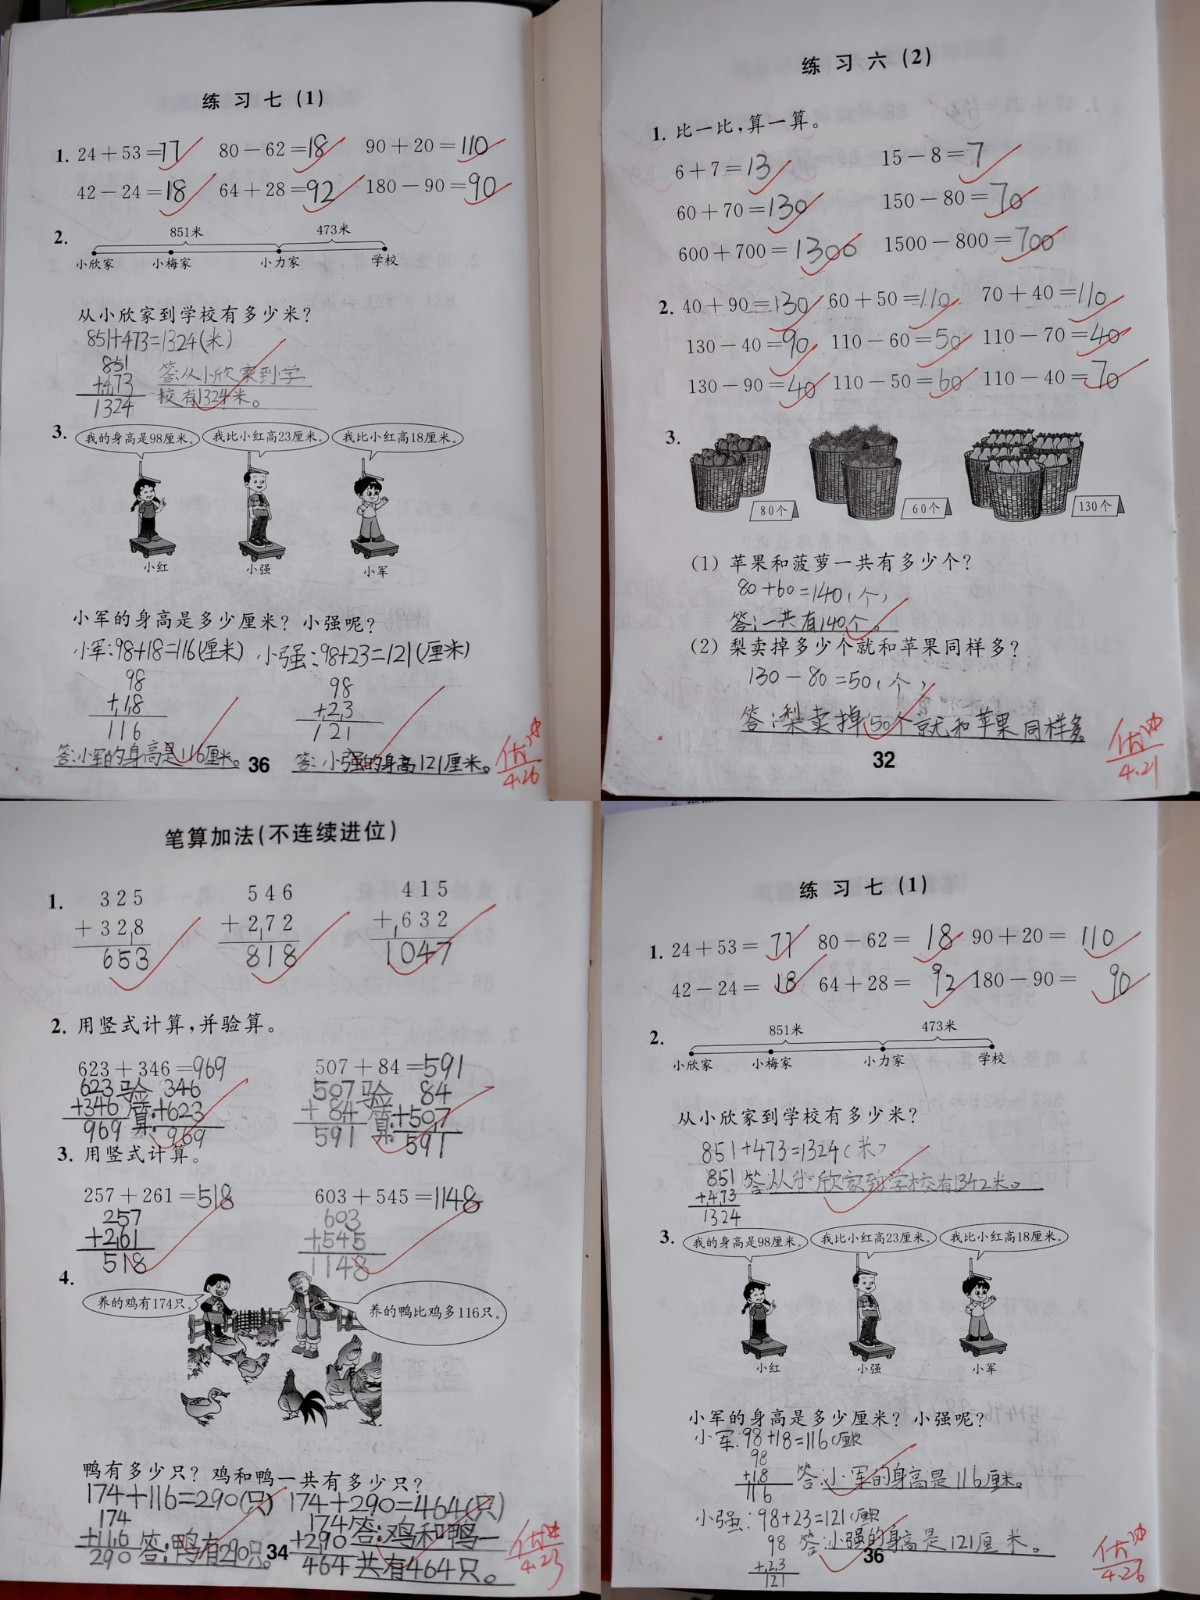 练习七(1)
1. 24+53=77 80-62=18 90+20=110
42-24=18 64+28=92 180-90=90
2.
851米 473米
小欣家 小梅家 小力家 学校
从小欣家到学校有多少米?
851+473=1324(米)
851
+473
1324
答:从小欣家到学
校有1324米。
3. 我的身高是98厘米。 我比小红高23厘米。 我比小红高18厘米。
小红 小强 小军
小军的身高是多少厘米? 小强呢?
小军:98+18=116(厘米) 小强:98+23=121(厘米)
98 98
+18 +23
116 121
答:小军的身高是116厘米。 36 答:小强的身高121厘米。
4.26
练习六(2)
1. 比一比,算一算。
6+7=13 15-8=7
60+70=130 150-80=70
600+700=1300 1500-800=700
2. 40+90=130 60+50=110 70+40=110
130-40=90 110-60=50 110-70=40
130-90=40 110-50=60 110-40=70
3.
80个 60个 130个
(1) 苹果和菠萝一共有多少个?
80+60=140(个)
答:一共有140个。
(2) 梨卖掉多少个就和苹果同样多?
130-80=50(个)
答:梨卖掉50个就和苹果同样多
32
4.21
笔算加法(不连续进位)
1. 325 546 415
+328 +272 +632
653 818 1047
2. 用竖式计算,并验算。
623+346=969 507+84=591
623 验 346 507 验 84
+346 算: +623 + 84 算: +507
969 969 591 591
3. 用竖式计算。
257+261=518 603+545=1148
257 603
+261 +545
518 1148
4.
养的鸡有174只。 养的鸭比鸡多116只。
鸭有多少只? 鸡和鸭一共有多少只?
174+116=290(只) 174+290=464(只)
174 174 答:鸡和鸭一
+116 答:鸭有290只。 34 +290
290 464 共有464只。
4.23
练习七(1)
1. 24+53=77 80-62=18 90+20=110
42-24=18 64+28=92 180-90=90
2.
851米 473米
小欣家 小梅家 小力家 学校
从小欣家到学校有多少米?
851+473=1324(米)
851 答:从小欣家到学校有1342米。
+473
1324
3. 我的身高是98厘米。 我比小红高23厘米。 我比小红高18厘米。
小红 小强 小军
小军的身高是多少厘米? 小强呢?
小军:98+18=116(厘米)
98
+18 答:小军的身高是116厘米。
116
小强:98+23=121(厘米)
98 答:小强的身高是121厘米。
+23 36
121
4.26